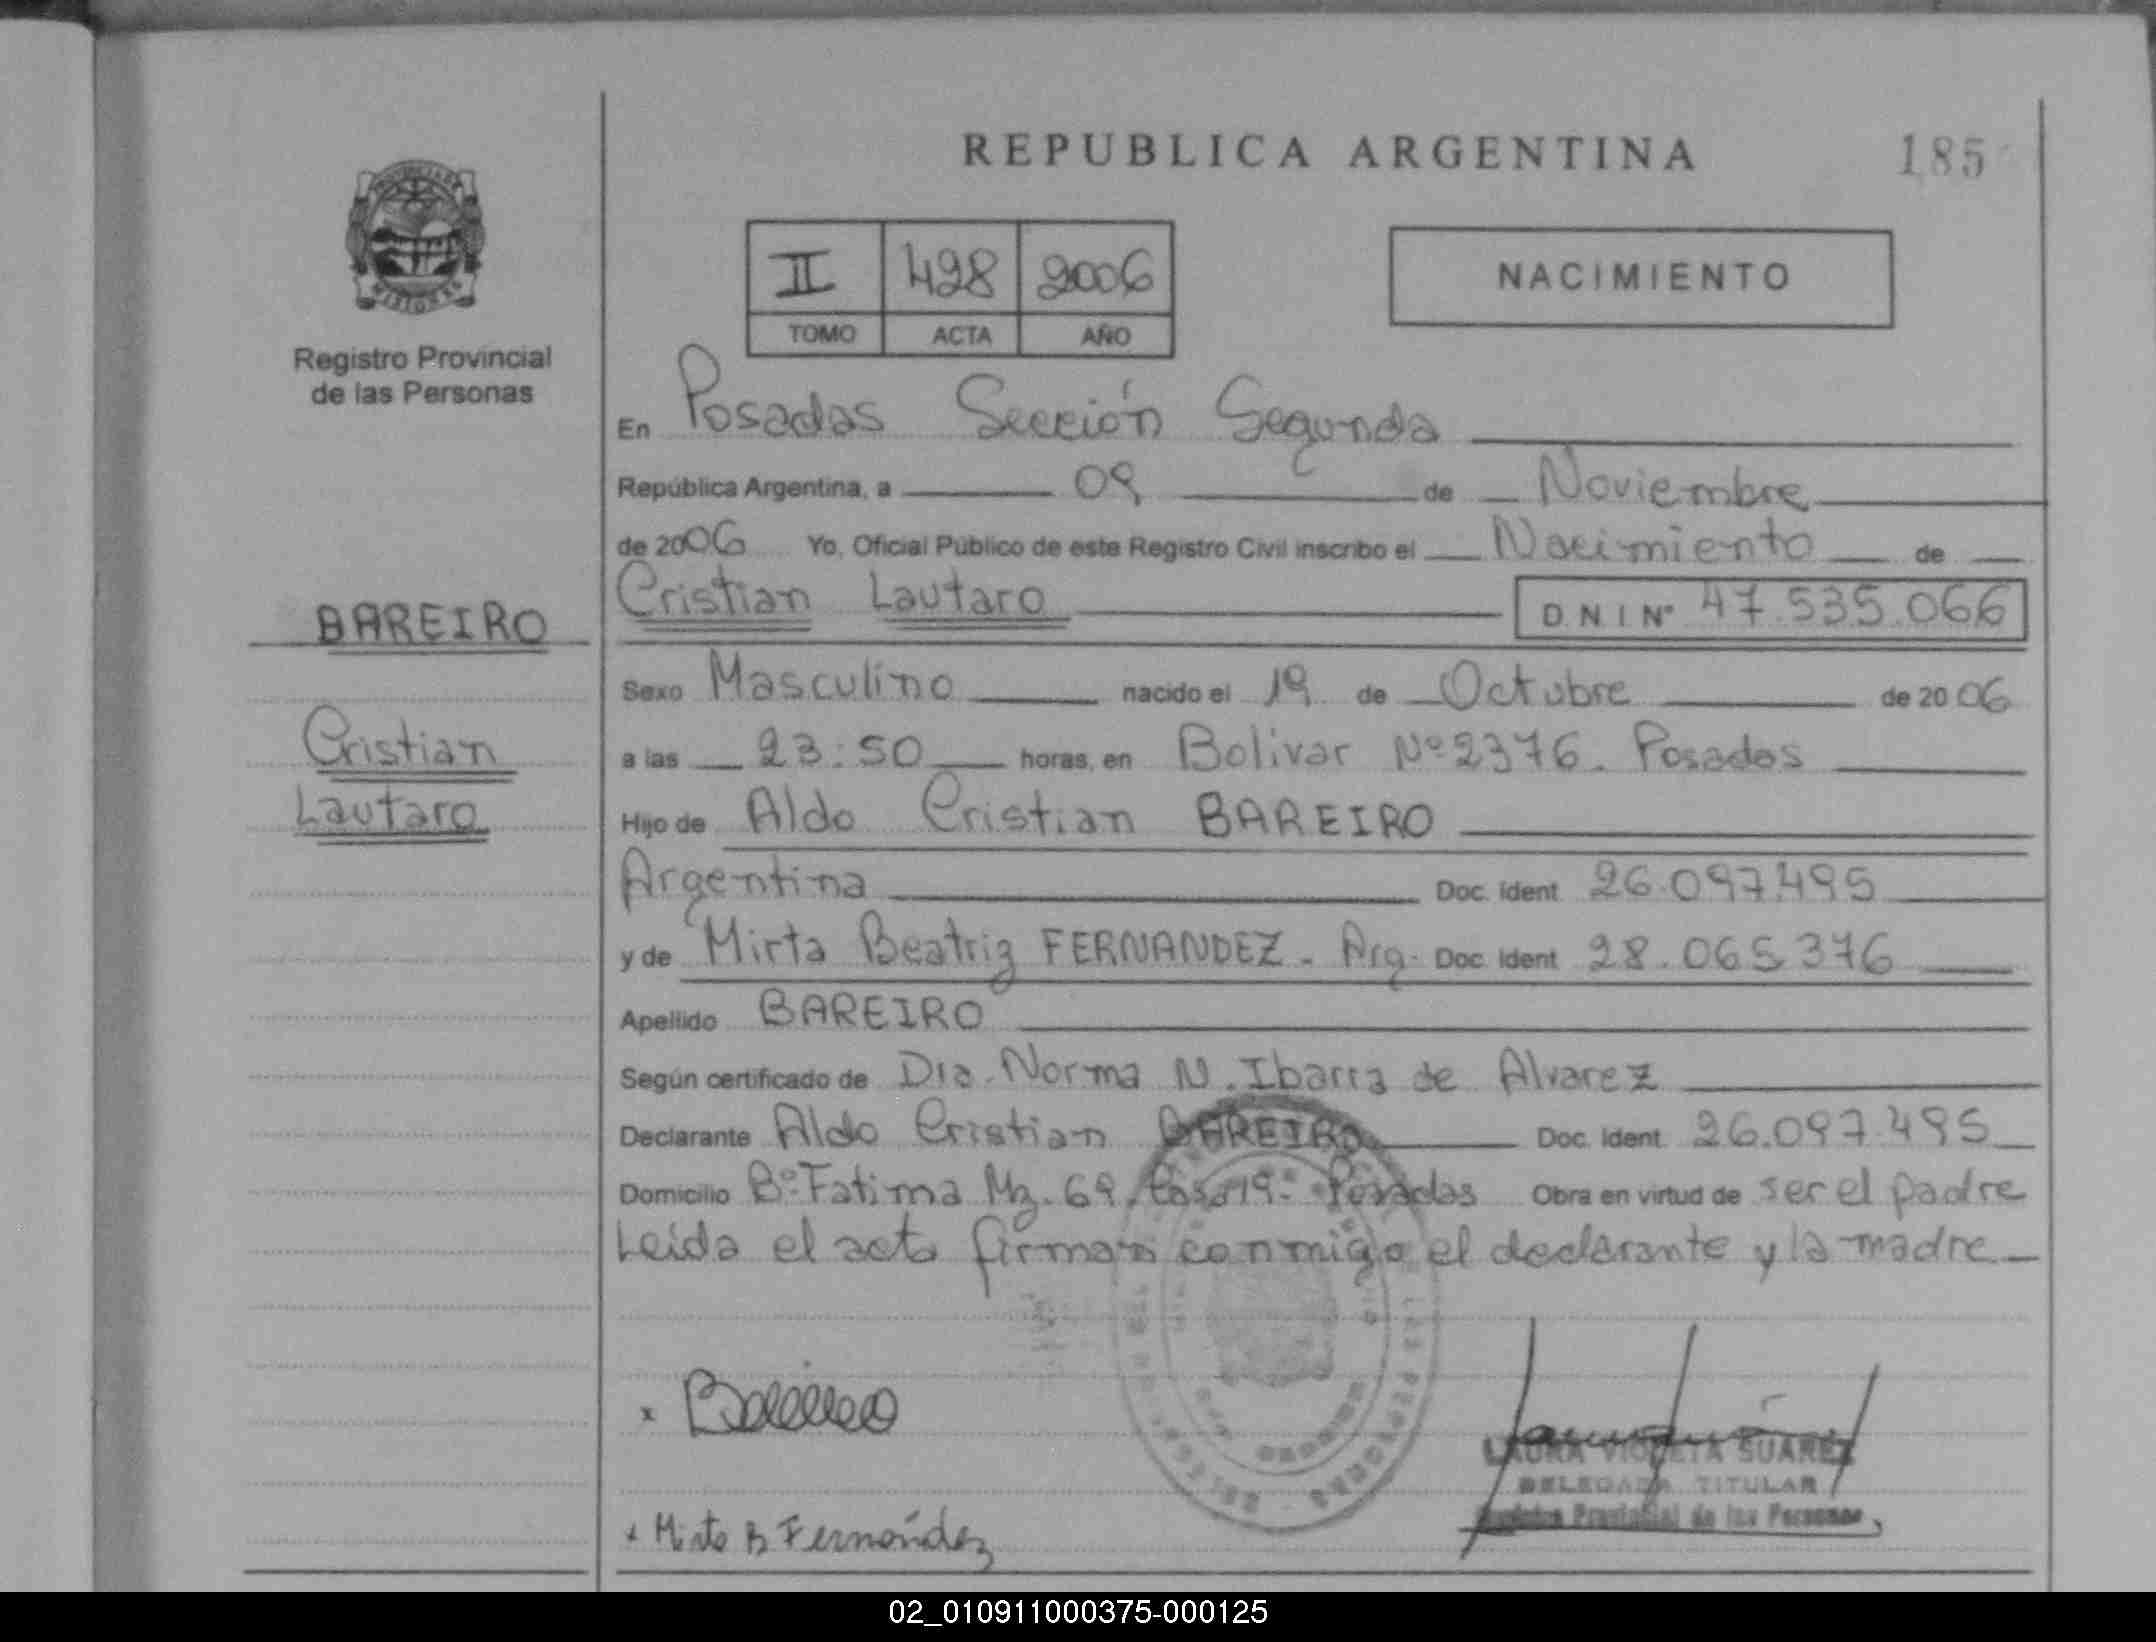 REPUBLICA ARGENTINA
185
II 428 2006
TOMO ACTA AÑO
NACIMIENTO
MISIONES
Registro Provincial
de las Personas
BAREIRO
Cristian
Lautaro
En Posadas Sección Segunda
República Argentina, a 09 de Noviembre
de 2006 Yo, Oficial Público de este Registro Civil inscribo el Nacimiento de
Cristian Lautaro D.N.I Nº 47.535.066
Sexo Masculino nacido el 19 de Octubre de 2006
a las 23:50 horas, en Bolivar Nº 2376. Posadas
Hijo de Aldo Cristian BAREIRO
Argentina Doc. Ident. 26.097.495
y de Mirta Beatriz FERNANDEZ - Arg. Doc. Ident 28.065.376
Apellido BAREIRO
Según certificado de Dra. Norma N. Ibarra de Alvarez
Declarante Aldo Cristian BAREIRO Doc. Ident. 26.097.495
Domicilio Bº Fatima Mz. 69. Casa 19 - Posadas Obra en virtud de ser el padre
Leída el acta firman conmigo el declarante y la madre
x Bareiro
x Mirta B Fernández
LAURA VIOLETA SUAREZ
DELEGADA TITULAR
Registro Provincial de las Personas
02_010911000375-000125